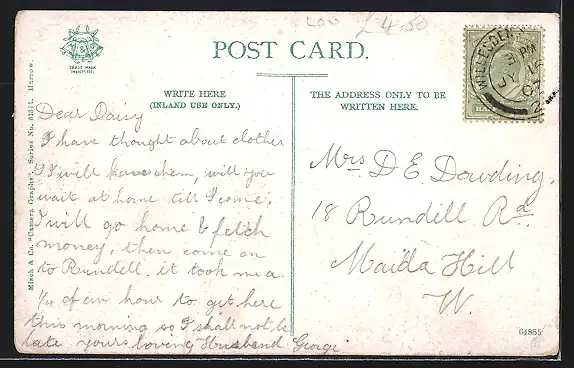 LOU £4.50
TRADE MARK
POST CARD.
WRITE HERE
(INLAND USE ONLY.)
Dear Daisy
I have thought about clothes
& I will have them, will you
wait at home till I come,
I will go home & fetch
money, then come on
to Rundell. it took me a
1/4 of an hour to get here
this morning so I shall not be
late yours loving Husband George
THE ADDRESS ONLY TO BE
WRITTEN HERE.
Mrs D E Dowding.
18 Rundell Rd
Maida Hill
W.
WILLESDEN
PM
JY 15
2
Misch & Co. "Camera Graphs". Series No. 631/1. Harrow.
64855